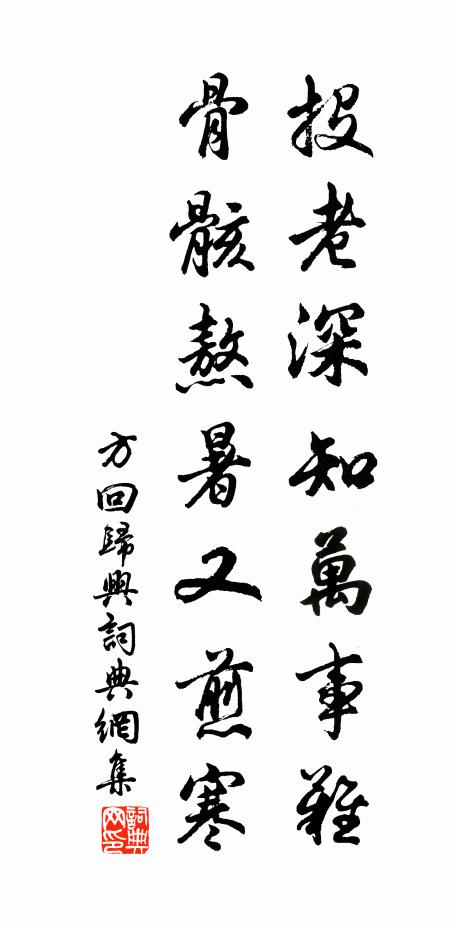 投老深知萬事難
骨骸熬暑又煎寒
方回歸興詞典網集
詞典网印